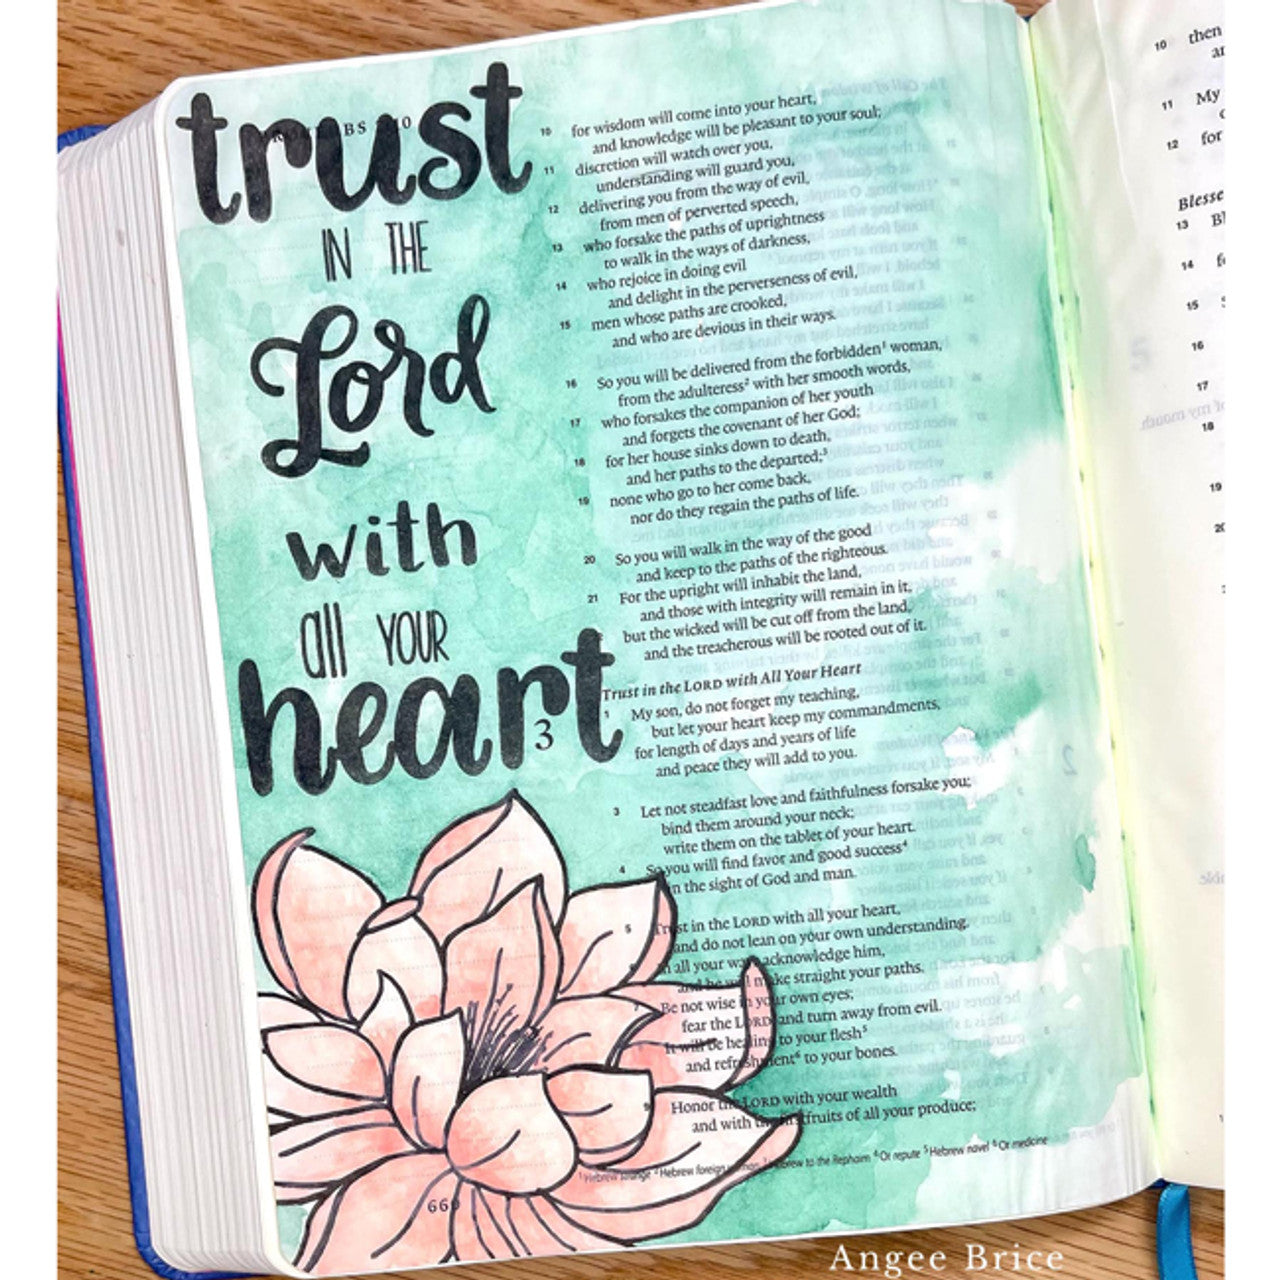 trust
IN THE
Lord
with
all YOUR
heart
10 for wisdom will come into your heart,
and knowledge will be pleasant to your soul;
11 discretion will watch over you,
understanding will guard you,
12 delivering you from the way of evil,
from men of perverted speech,
13 who forsake the paths of uprightness
to walk in the ways of darkness,
14 who rejoice in doing evil
and delight in the perverseness of evil,
15 men whose paths are crooked,
and who are devious in their ways.
16 So you will be delivered from the forbidden¹ woman,
from the adulteress² with her smooth words,
17 who forsakes the companion of her youth
and forgets the covenant of her God;
18 for her house sinks down to death,
and her paths to the departed;³
19 none who go to her come back,
nor do they regain the paths of life.
20 So you will walk in the way of the good
and keep to the paths of the righteous.
21 For the upright will inhabit the land,
and those with integrity will remain in it,
but the wicked will be cut off from the land,
and the treacherous will be rooted out of it.
Trust in the LORD with All Your Heart
3
1 My son, do not forget my teaching,
but let your heart keep my commandments,
for length of days and years of life
and peace they will add to you.
3 Let not steadfast love and faithfulness forsake you;
bind them around your neck;
write them on the tablet of your heart.
4 So you will find favor and good success⁴
in the sight of God and man.
5 Trust in the LORD with all your heart,
and do not lean on your own understanding,
all your ways acknowledge him,
and he will make straight your paths.
7 Be not wise in your own eyes;
fear the LORD and turn away from evil.
It will be healing to your flesh⁵
and refreshment⁶ to your bones.
9 Honor the LORD with your wealth
and with the firstfruits of all your produce;
¹Hebrew strange ²Hebrew foreign woman ³Hebrew to the Rephaim ⁴Or repute ⁵Hebrew navel ⁶Or medicine
10 then
11 My
12 for
Blesse
13 Bl
14
15
16
17
18
19
20
Angee Brice